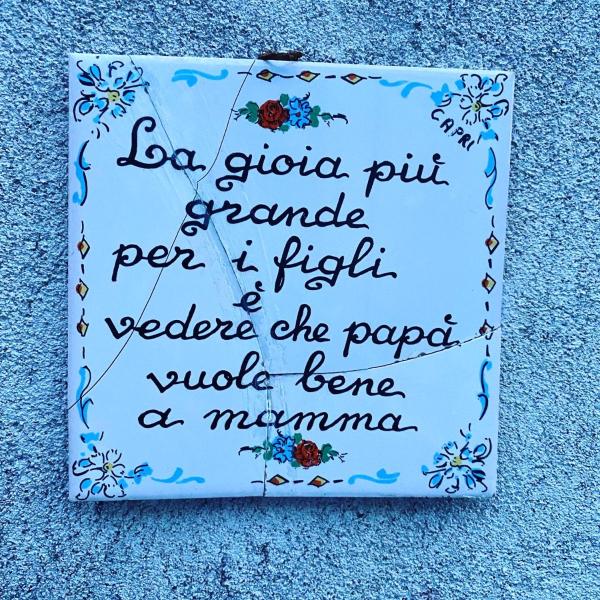 CAPRI
La gioia più
grande
per i figli
è
vedere che papà
vuole bene
a mamma